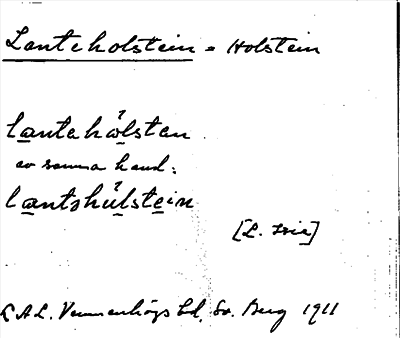 Lanteholstein = Holstein
lantehòlsten
av samma hand:
lantshúlstein
[L. Isie]
L.A.L. Vemmenhögs hd, Sv. Berg 1911